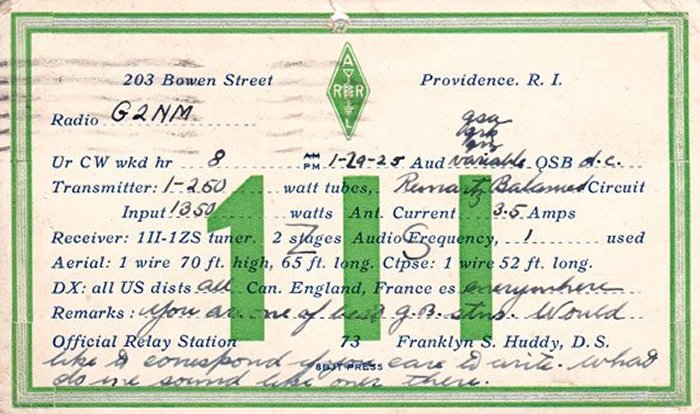 A
R R
L
203 Bowen Street Providence. R. I.
Radio G2NM
qsa
Ur CW wkd hr 8 AM PM 1-29-25 Aud variable QSB d.c.
Transmitter: 1-250 watt tubes, Balanced Circuit
Input 1350 watts Ant. Current 3.5 Amps
Receiver: 1II-1ZS tuner. 2 stages Audio Frequency, 1 used
Aerial: 1 wire 70 ft. high, 65 ft. long. Ctpse: 1 wire 52 ft. long.
DX: all US dists all Can. England, France es everywhere
Remarks: You are one of best g.B. stns. Would
Official Relay Station 73 Franklyn S. Huddy, D. S.
like to correspond if you care to write. What
do we sound like over there.
8BJT PRESS
1II